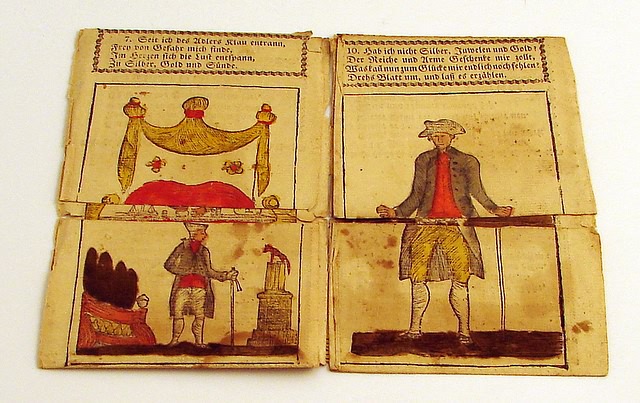 7. Seit ich des Adlers Klau entrann,
Frey von Gefahr mich finde,
Im Herzen sich die Lust entspann,
In Silber, Gold und Sünde.
10. Hab ich nicht Silber, Juwelen und Gold?
Der Reiche und Arme Geschenke mir zollt,
Was kañ nun zum Glücke mir endlich noch fehlen?
Drehs Blatt um, und laß es erzählen.